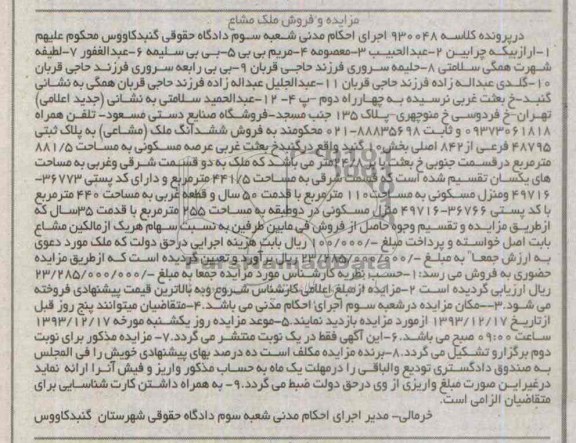 مزایده و فروش ملک مشاع
درپرونده کلاسه ۹۳۰۰۴۸ اجرای احکام مدنی شعبه سوم دادگاه حقوقی گنبدکاووس محکوم علیهم
۱-ارازبیکه چرابین ۲-عبدالحبیب ۳-معصومه ۴-مریم بی بی ۵-بی بی سلیمه ۶-عبدالغفور ۷-لطیفه
شهرت همگی سلامتی ۸-حلیمه سروری فرزند حاجی قربان ۹-بی بی رابعه سروری فرزند حاجی قربان
۱۰-گلدی عبداله زاده فرزند حاجی قربان ۱۱-عبدالجلیل عبداله زاده فرزند حاجی قربان همگی به نشانی
گنبد-خ بعثت غربی نرسیده به چهارراه دوم -پ ۴- ۱۲-عبدالحمید سلامتی به نشانی (جدید اعلامی)
تهران-خ فردوسی خ منوچهری-پلاک ۱۳۵ جنب مسجد-فروشگاه صنایع دستی مسعود- تلفن همراه
۰۹۳۷۳۰۶۱۸۱۸ و ثابت ۸۸۸۳۵۶۹۸-۰۲۱ محکومند به فروش ششدانگ ملک (مشاعی) به پلاک ثبتی
۴۸۷۹۵ فرعی از ۸۴۲ اصلی بخش ۱۰ گنبد واقع درگنبدخ بعثت غربی عرصه مسکونی به مساحت ۸۸۱/۵
مترمربع درقسمت جنوبی خ بعثت متر می باشد که ملک به دو قسمت شرقی وغربی به مساحت
های یکسان تقسیم شده است که قسمت شرقی به مساحت ۴۴۱/۵ مترمربع و دارای کد پستی ۳۶۷۷۳-
۴۹۷۱۶ ومنزل مسکونی به مساحت ۱۱۰ مترمربع با قدمت ۵۰ سال و قطعه غربی به مساحت ۴۴۰ مترمربع
با کد پستی ۳۶۷۶۶-۴۹۷۱۶ منزل مسکونی در دوطبقه به مساحت ۲۵۵ مترمربع با قدمت ۳۵سال که
ازطریق مزایده و تقسیم وجوه حاصل از فروش فی مابین طرفین به نسبت سهام هریک ازمالکین مشاع
بابت اصل خواسته و پرداخت مبلغ ریال بابت هزینه اجرایی درحق دولت که ملک مورد دعوی
به ارزش جمعا" به مبلغ ریال برآورد و تعیین گردیده است که ازطریق مزایده
حضوری به فروش می رسد: ۱-حسب نظریه کارشناس مورد مزایده جمعا به مبلغ -/۲۳/۲۸۵/۰۰۰/۰۰۰
ریال ارزیابی گردیده است ۲-مزایده ازمبلغ اعلامی کارشناس شروع وبه بالاترین قیمت پیشنهادی فروخته
می شود.۳--مکان مزایده درشعبه سوم اجرای احکام مدنی می باشد.۴-متقاضیان میتوانند پنج روز قبل
ازتاریخ ۱۳۹۳/۱۲/۱۷ ازمورد مزایده بازدید نمایند.۵-موعد مزایده روز یکشنبه مورخه ۱۳۹۳/۱۲/۱۷
ساعت ۰۹:۰۰ صبح می باشد.۶-این آگهی فقط در یک نوبت منتشر می گردد.۷-مزایده مذکور برای نوبت
دوم برگزار و تشکیل می گردد.۸-برنده مزایده مکلف است ده درصد بهای پیشنهادی خویش را فی المجلس
به صندوق دادگستری تودیع والباقی را درمهلت یک ماه به حساب مذکور واریز و فیش آنرا ارائه نماید
درغیراین صورت مبلغ واریزی از وی درحق دولت ضبط می گردد.۹- به همراه داشتن کارت شناسایی برای
متقاضیان الزامی است.
خرمالی- مدیر اجرای احکام مدنی شعبه سوم دادگاه حقوقی شهرستان گنبدکاووس